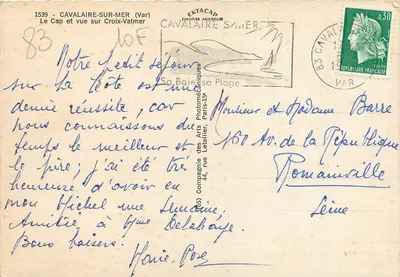 1539 - CAVALAIRE-SUR-MER (Var)
Le Cap et vue sur Croix-Valmer
83
10F
EKTACAP
CAVALAIRE S/MER
Sa Baie Sa Plage
83 CAVALAIRE
VAR
0,30
REPUBLIQUE FRANÇAISE
(65) Compagnie des Arts Photomécaniques
44, rue Letellier, Paris-15e
Notre petit séjour
sur la Côte est une
demie réussite, car
nous connaissons du
temps le meilleur et
le pire; j'ai été très
heureuse d'avoir eu
mon Michel une semaine,
Amitié à Mme Delahaye.
Bons baisers.
Marie-Rose
Monsieur et Madame Barre
160 Av. de la République
Romainville
Seine